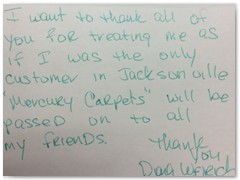 I want to thank all of
you for treating me as
if I was the only
customer in Jacksonville
"Mercury Carpets" will be
passed on to all
my friends.
Thank
you